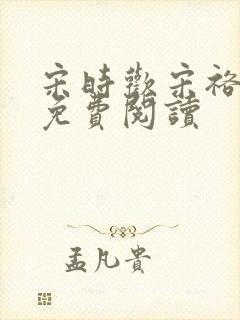 宋時歡宋裕
免費閱讀
孟凡貴